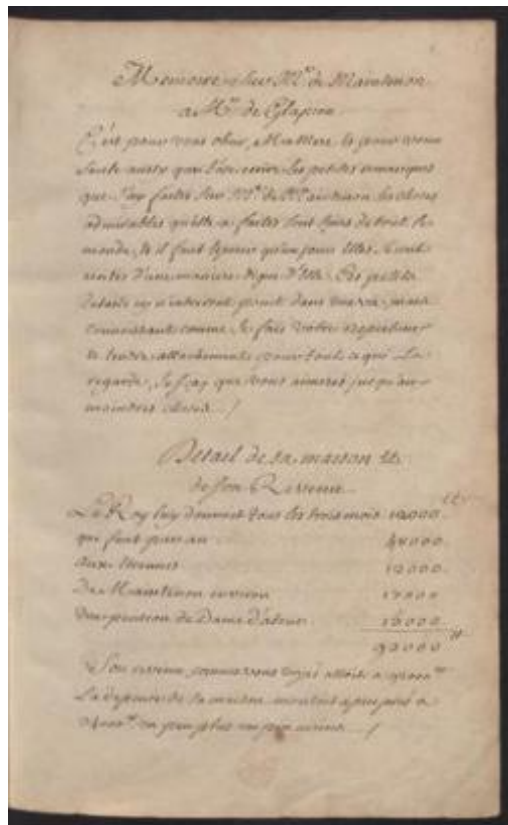 Memoire sur Me. de Maintenon
a Me. de Glapion
C'est pour vous obeir, Ma Mere, et pour vous
seule que les petites remarques
que j'ay faites sur Me. de Maintenon les choses
admirables qu'elle a faites sont sçues de tout le
monde, et il faut esperer qu'un jour elles seront
écrites d'une maniere digne d'elle. Ces petits
details n'entreront point dans
connoissant comme je fais votre
et tendre attachement pour tout ce qui la
regarde, je sçay que vous aimerés jusqu'aux
moindres choses
Detail de sa maison et
de son Revenu
Le Roy luy donnoit tous les trois mois 12000
qui font par an 48000
aux Etrennes 12000
De Maintenon environ
Une pension de Dame d'atour
Son revenu, comme vous voyés alloit a
La depense de sa maison montoit a peu près a
un peu plus un peu moins